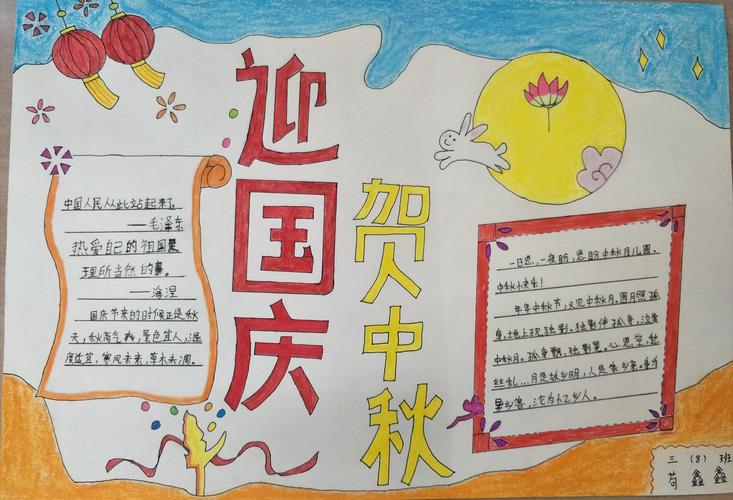 迎国庆
贺中秋
中国人民从此站起来了
——毛泽东
热爱自己的祖国是
理所当然的事。
——海涅
国庆节来的时候正是秋
天,秋高气爽,景色宜人,温
度适宜,寒风未来,草木未凋。
一日思,一夜盼,思盼中秋月儿圆。
中秋快乐!
年年中秋节,又见中秋月。圆月照孤
身,地上现独影。独影伴孤身,泣賞
中秋月。孤身飘,独影晃。心思宽,愁
丝乱...月是故乡明,人是家乡亲。身为
异乡客,沱为忆乡人。
三(8)班
苟鑫鑫